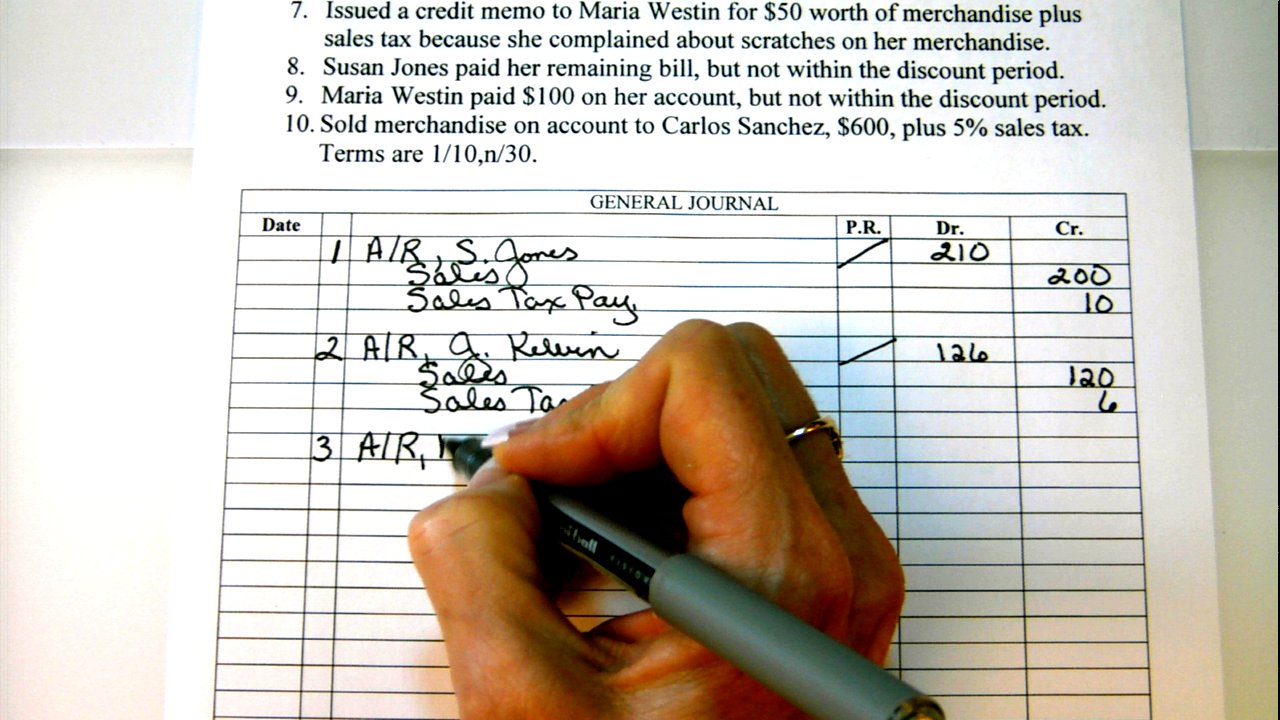 7. Issued a credit memo to Maria Westin for $50 worth of merchandise plus
sales tax because she complained about scratches on her merchandise.
8. Susan Jones paid her remaining bill, but not within the discount period.
9. Maria Westin paid $100 on her account, but not within the discount period.
10. Sold merchandise on account to Carlos Sanchez, $600, plus 5% sales tax.
Terms are 1/10,n/30.
GENERAL JOURNAL
Date P.R. Dr. Cr.
1 A/R, S. Jones 210
Sales 200
Sales Tax Pay. 10
2 A/R, J. Kelvin 126
Sales 120
Sales Ta 6
3 A/R,